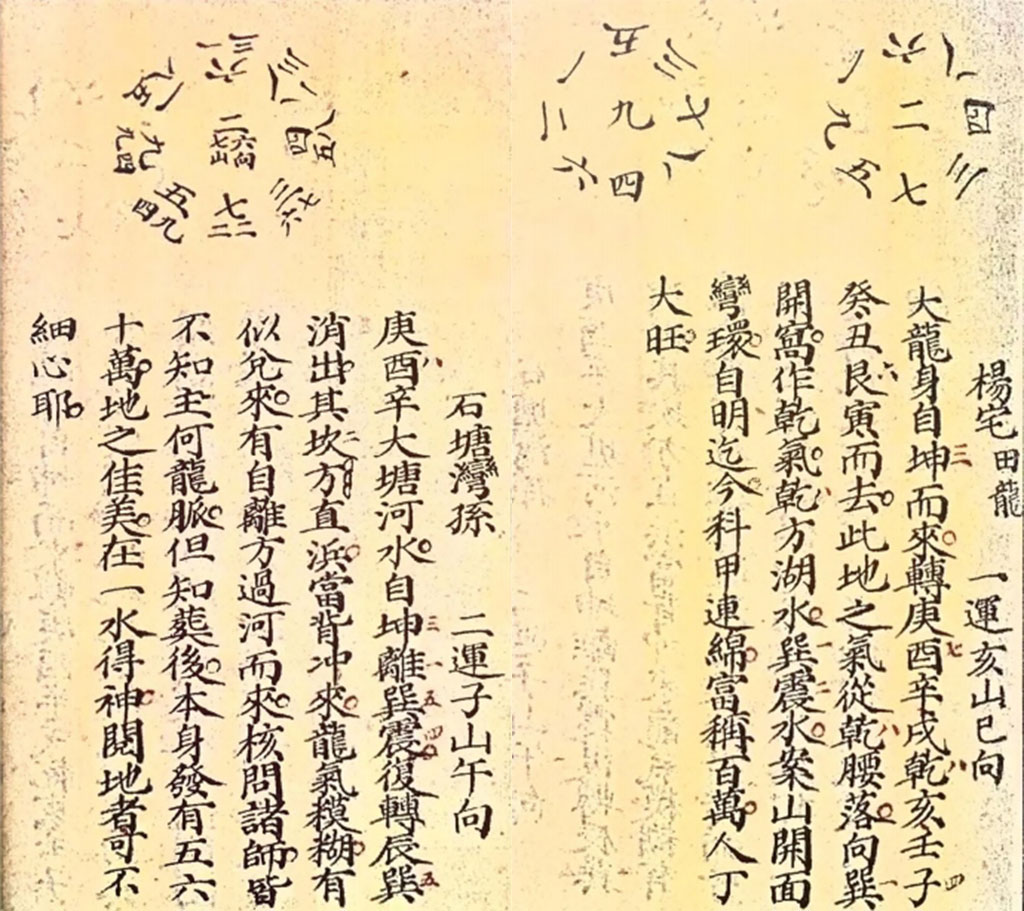 一六八
九二四
五七三
楊宅田龍　一運亥山巳向
大龍身自坤而來轉庚酉辛戌乾亥壬子
癸丑艮寅而去此地之氣從乾腰落向巽
開窩作乾氣乾方湖水巽震水案山開面
彎環自明迄今科甲連綿富稱百萬人丁
大旺
一五三
二九七
六四八
二
七山 六向
石塘灣孫　二運子山午向
庚酉辛大塘河水自坤離巽震復轉辰巽
消出其坎方直浜當背冲來龍氣糢糊有
似兌來有自離方過河而來核問諸師皆
不知主何龍脈但知葬後本身發有五六
十萬地之佳美在一水得神閱地者哥不
細心耶